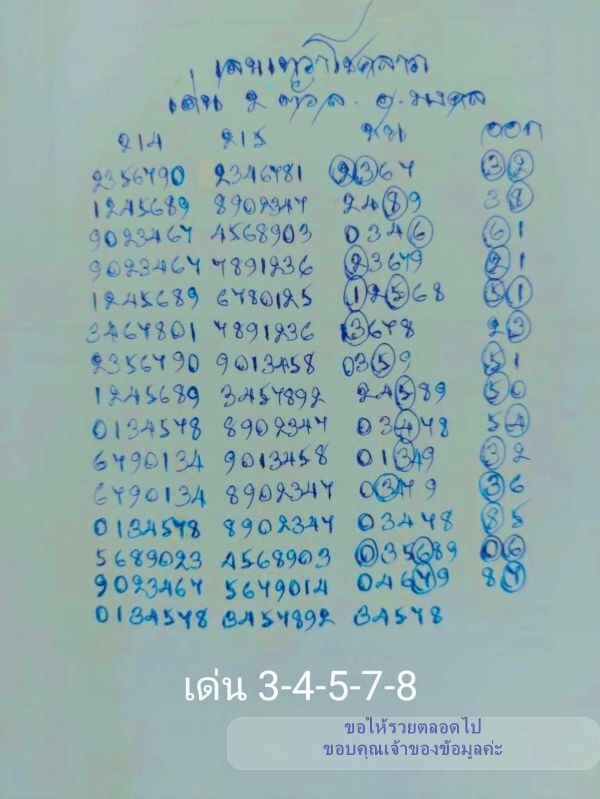 เลขเทวาโชคลาภ
เด่น 2 ตัวล. อ.มงคล
214 215 ชน ออก
2356790 2346781 2367 32
1245689 8902347 2489 38
9023467 4568903 0346 61
9023467 7891236 23679 21
1245689 6780125 12568 51
3467801 7891236 3678 23
2356790 9013458 0359 51
1245689 3457892 24589 50
0134578 8902347 03478 54
6790134 9013458 01349 32
6790134 8902347 03479 36
0134578 8902347 03478 85
5689023 4568903 035689 06
9023467 5679014 04679 87
0134578 3457892 34578
เด่น 3-4-5-7-8
ขอให้รวยตลอดไป
ขอบคุณเจ้าของข้อมูลค่ะ